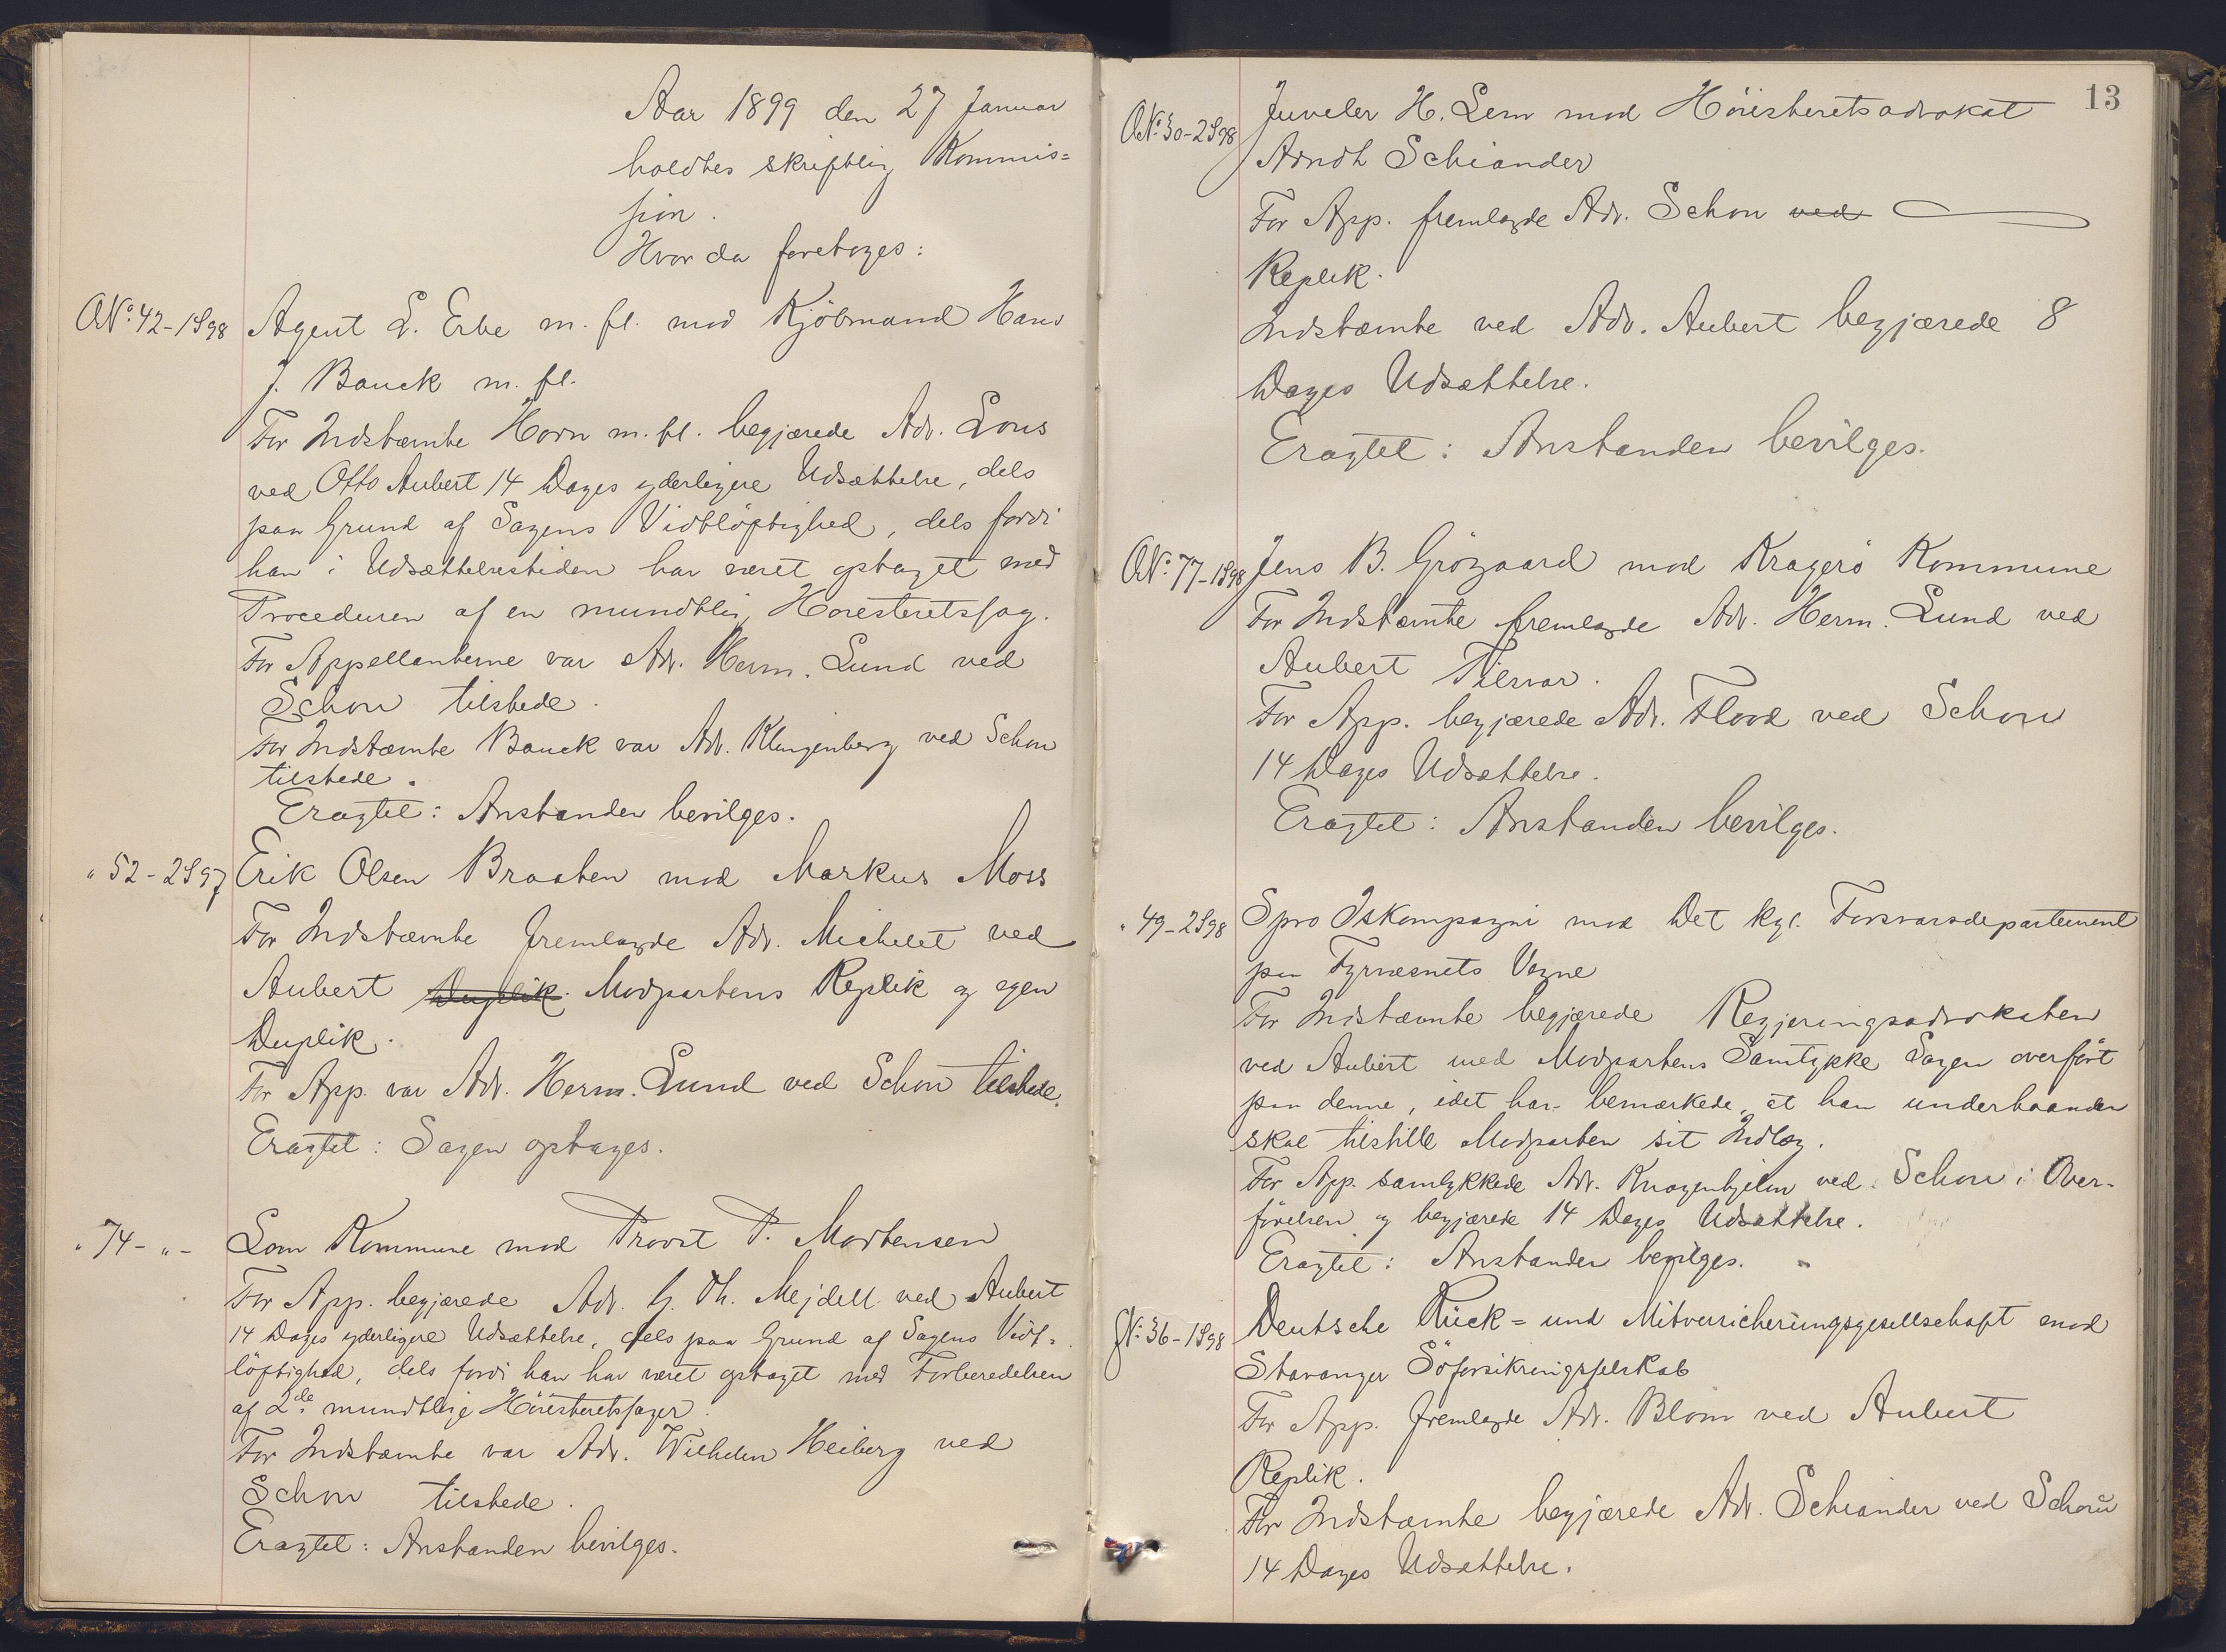 Aar 1899 den 27 Januar
holdtes skriftlig Kommis=
sion.
Hvor da foretoges:
ONº 42-1S98 Agent L. Erbe m. fl. mod Kjöbmand Hans
J. Banck m. fl.
For Indstævnte Horn m. fl. begjærede Adv. Lous
ved Otto Aubert 14 Dages yderligere Udsættelse, dels
paa Grund af Sagens Vidtlöftighed, dels fordi
han i Udsættelsestiden har været optaget med
Proceduren af en mundtlig Høiesteretssag.
For Appellanterne var Adv. Herm. Lund ved
Schou tilstede.
For Indstævnte Banck var Adv. Klingenberg ved Schou
tilstede.
Eragtet: Anstanden bevilges.
" 52-2S97 Erik Olsen Braaten mod Markus Moss
For Indstævnte fremlagde Adv. Michelet ved
Aubert Duplik. Modpartens Replik og egen
Duplik.
For App. var Adv. Herm. Lund ved Schou tilstede.
Eragtet: Sagen optages.
" 74- " - Lom Kommune mod Provst P. Mortensen
For App. begjærede Adv. G. Th. Mejdell ved Aubert
14 Dages yderligere Udsættelse, dels paa Grund af Sagens Vidt=
löftighed, dels fordi han har været optaget med Forberedelsen
af 2de mundtlige Höiesteretssager.
For Indstævnte var Adv. Wilhelm Heiberg ved
Schou tilstede.
Eragtet: Anstanden bevilges.
13
ONº 30-2S98 Juveler H. Lem mod Höiesteretsadvokat
Arndt Schiander
For App. fremlagde Adv. Schou ved
Replik.
Indstævnte ved Adv. Aubert begjærede 8
Dages Udsættelse.
Eragtet: Anstanden bevilges.
ONº 77-1S98 Jens B. Grögaard mod Kragerö Kommune
For Indstævnte fremlagde Adv. Herm. Lund ved
Aubert Tilsvar.
For App. begjærede Adv. Flood ved Schou
14 Dages Udsættelse.
Eragtet: Anstanden bevilges.
" 49-2S98 Spro Iskompagni mod Det kgl. Forsvarsdepartement
paa Fyrvæsnets Vegne
For Indstævnte begjærede Regjeringsadvokaten
ved Aubert med Modpartens Samtykke Sagen overfört
paa denne, idet han bemærkede, at han underhaanden
skal tilstille Modparten sit Indlæg.
For App. samtykkede Adv. Knagenhjelm ved Schou i Over-
förelsen og begjærede 14 Dages Udsættelse.
Eragtet: Anstanden bevilges.
GNº 36-1S98 Deutsche Rück= und Mitversicherungsgesellschaft mod
Stavanger Söforsikringsselskab
For App. fremlagde Adv. Blom ved Aubert
Replik.
For Indstævnte begjærede Adv. Schiander ved Schou
14 Dages Udsættelse.